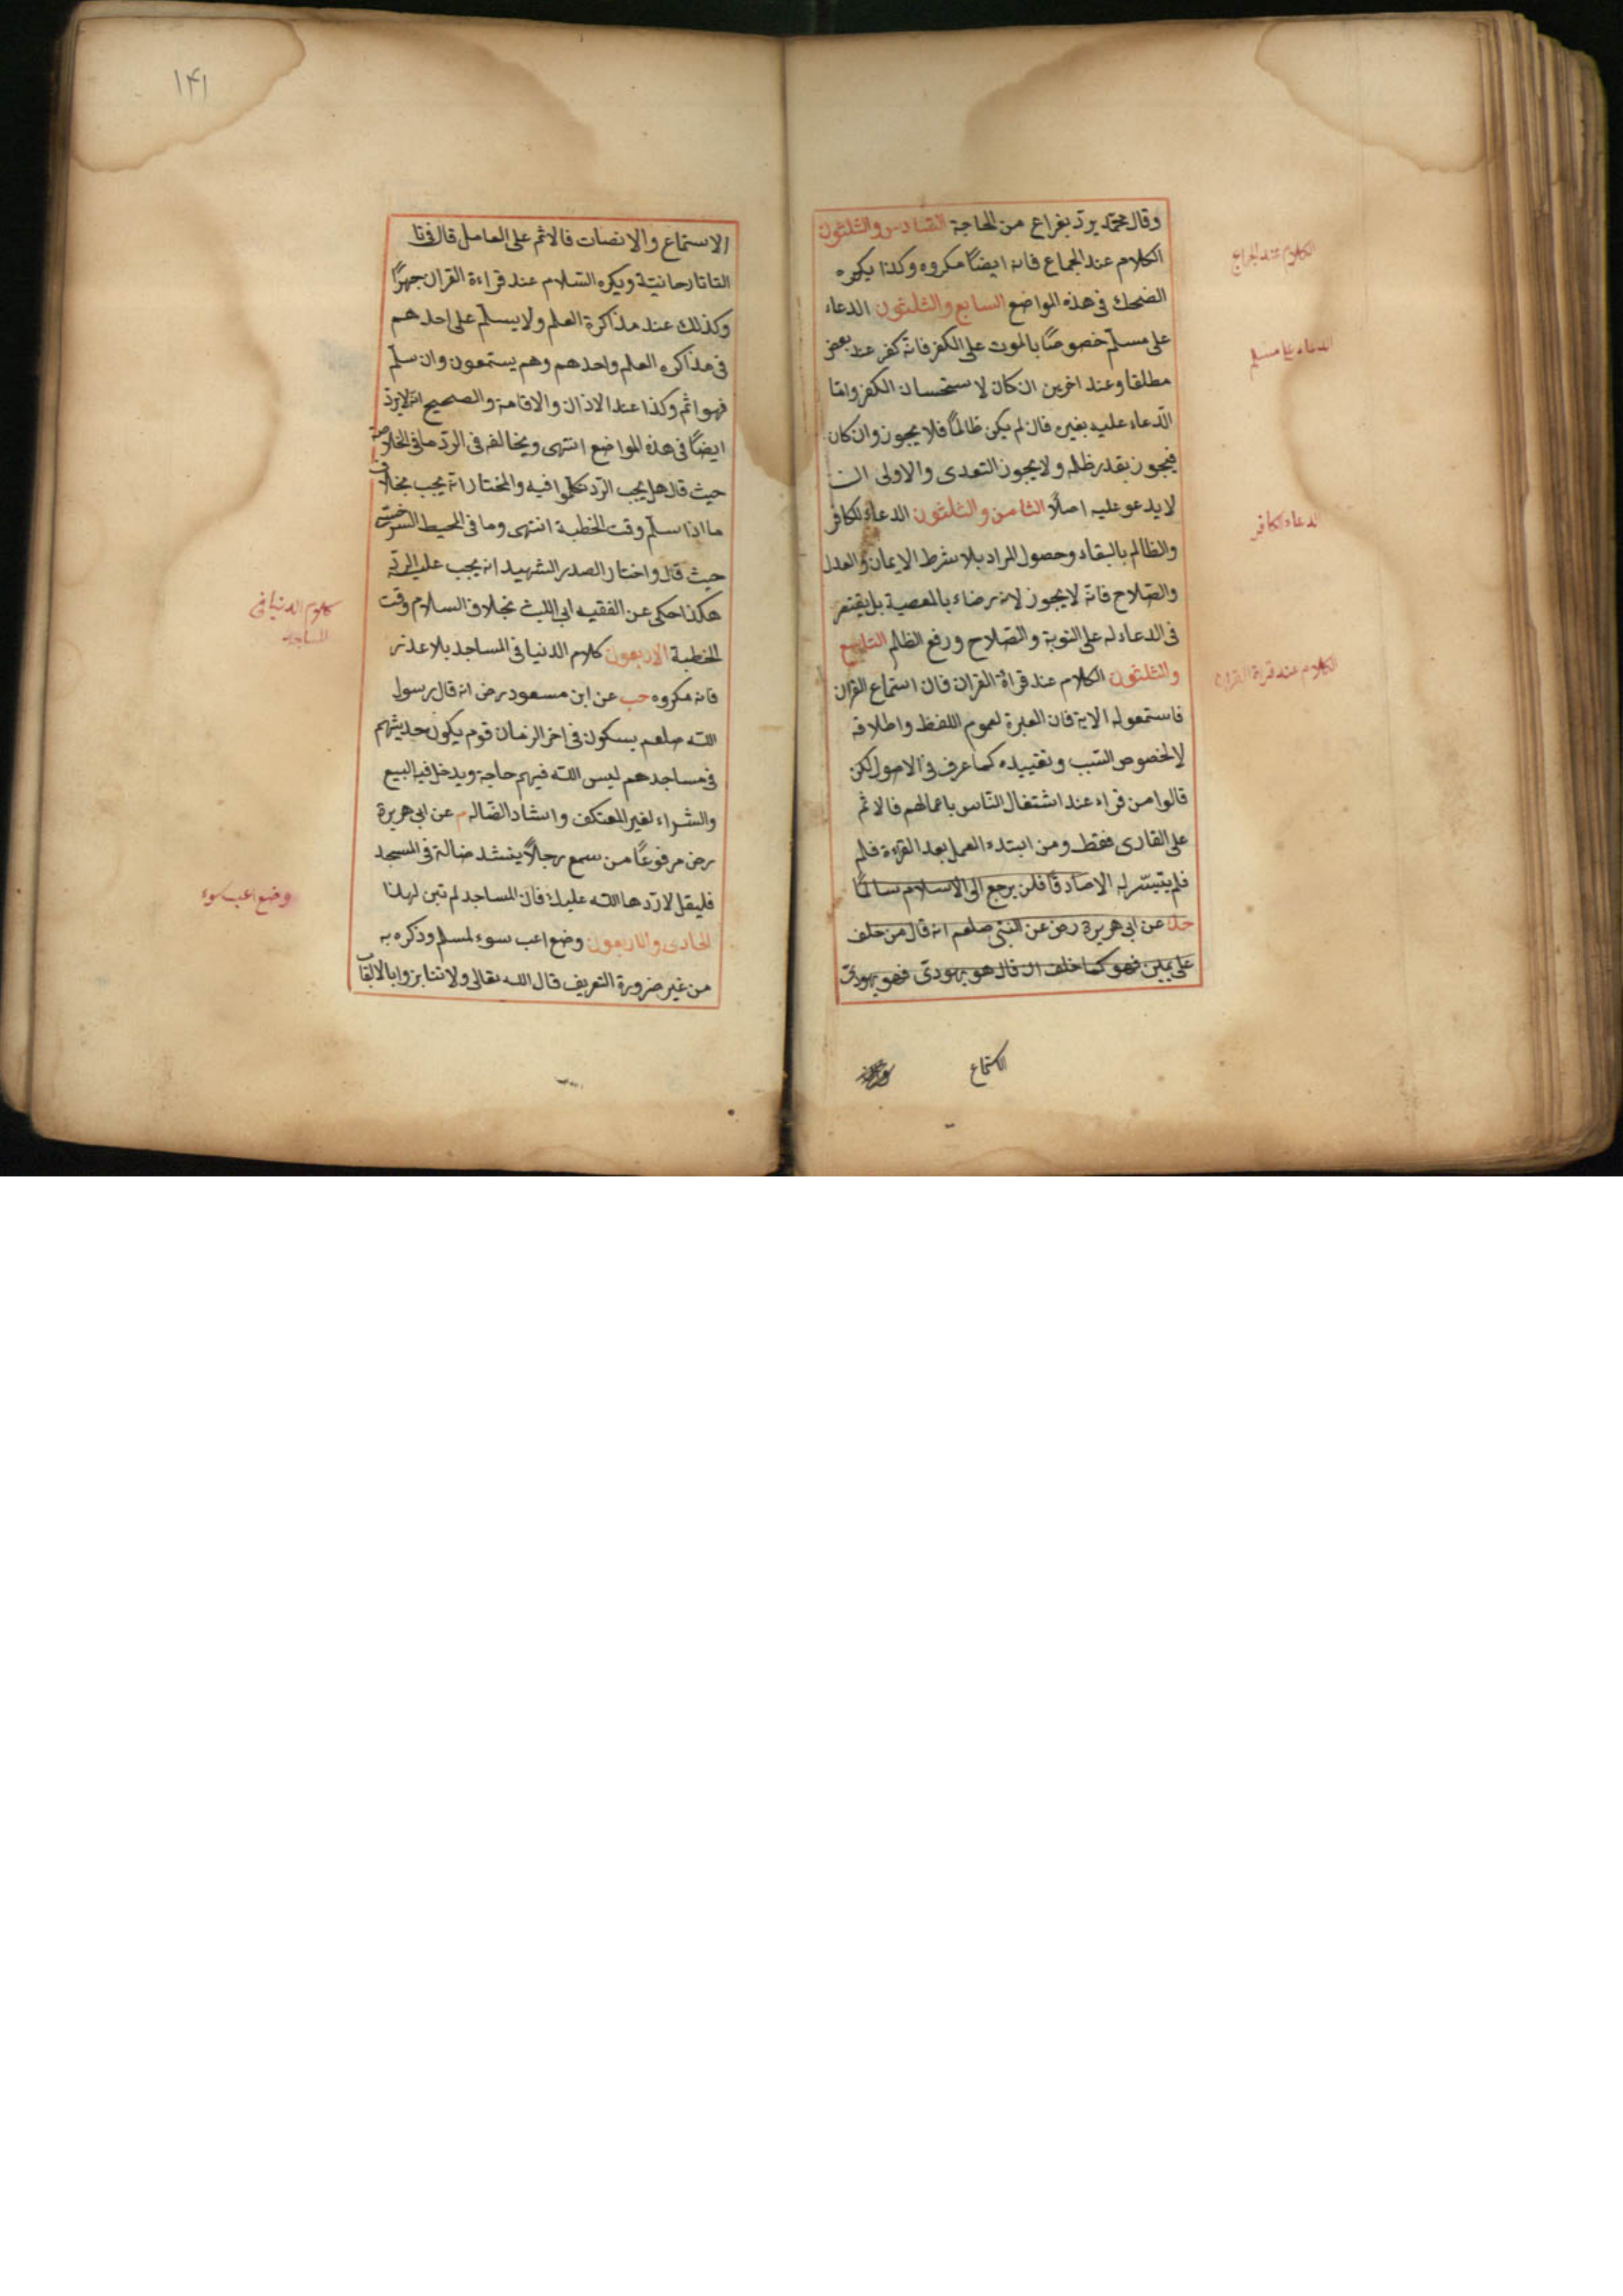 وقال محمد يرد بفراغ من الحاجة السادس والثلثون
الكلام عند الجماع فانه ايضًا مكروه وكذا يكره
الضحك فى هذه المواضع السابع والثلثون الدعاء
على مسلم خصوصًا بالموت على الكفر فانه كفر عند بعض
مطلقا وعند اخرين ان كان لاستحسان الكفر واما
الدعاء عليه بغيره فان لم يكن ظالمًا فلا يجوز وان كان
فيجوز بقدر ظلمه ولا يجوز التعدى والاولى ان
لا يدعو عليه اصلًا الثامن والثلثون الدعاء للكافر
والظالم بالبقاء وحصول المراد بلا شرط الايمان والعدل
والصلاح فانه لا يجوز لانه رضاء بالمعصية بل يقتصر
فى الدعاء له على التوبة والصلاح ورفع الظلم التاسع
والثلثون الكلام عند قراة القران فان استماع القران
فاستمعوا له الاية فان العبرة لعموم اللفظ واطلاقه
لا لخصوص السبب وتقييده كما عرف فى الاصول لكن
قالوا من قراء عند اشتغال الناس باعمالهم فالاثم
على القارى فقط ومن ابتدء العمل بعد القراءة فلم
فلم يتيسر له الا صادقًا فلن يرجع الى الاسلام سالمًا
حل عن ابى هريرة رض عن النبى صلعم انه قال من حلف
على يمين فهو كما حلف ان قال هو يهودى فهو يهودى
الاستماع
الكلام عند الجماع
الدعاء على مسلم
الدعاء للكافر
الكلام عند قراة القران
١٤١
الاستماع والانصات فالاثم على العامل قال فى تا
التاتارحانية ويكره السلام عند قراءة القران جهرًا
وكذلك عند مذاكرة العلم ولا يسلم على احدهم
فى مذاكره العلم واحدهم وهم يستمعون وان سلم
فهو اثم وكذا عند الاذان والاقامة والصحيح انه لا يرد
ايضًا فى هذه المواضع انتهى ويخالفه فى الرد ما فى الخلاصة
حيث قال هل يجب الرد تكلموا فيه والمختار انه يجب بخلاف
ما اذا سلم وقت الخطبة انتهى وما فى المحيط السرخسى
حيث قال واختار الصدر الشهيد انه يجب عليه الرد
هكذا حكى عن الفقيه ابى الليث بخلاف السلام وقت
الخطبة الاربعون كلام الدنيا فى المساجد بلا عذر
فانه مكروه حب عن ابن مسعود رض انه قال رسول
الله صلعم سيكون فى اخر الزمان قوم يكون حديثهم
فى مساجدهم ليس الله فيهم حاجة ويدخل فيه البيع
والشراء لغير المعتكف وانشاد الضاله م عن ابى هريرة
رض مرفوعًا من سمع رجالًا ينشد ضالة فى المسجد
فليقل لا ردها الله عليك فان المساجد لم تبن لهذا
الحادى والاربعون وضع اعب سوء لمسلم وذكره به
من غير ضرورة التعريف قال الله تعالى ولا تنابزوا بالالقاب
كلام الدنيا فى
المساجد
وضع اعب سوء